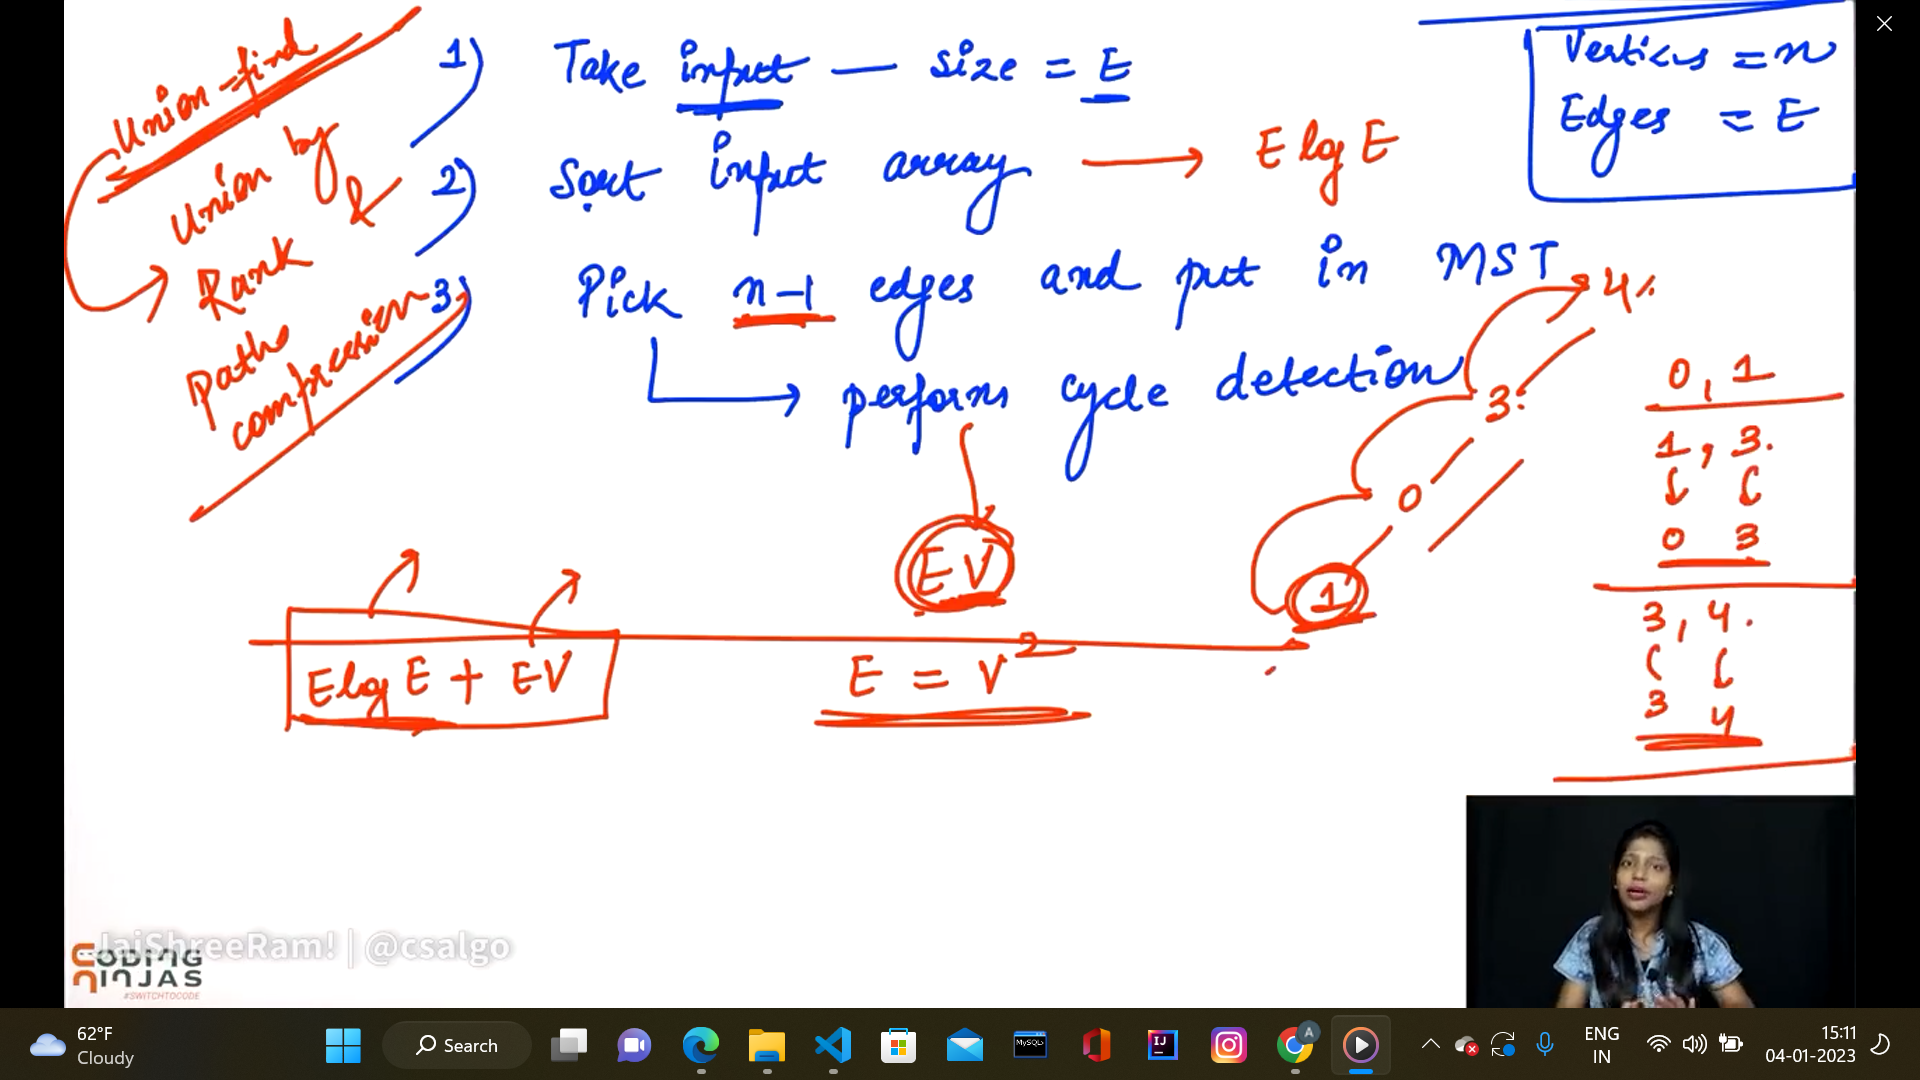 Union-find
Union by
Rank &
Path
compression
1) Take input — size = E
2) Sort input array → E log E
3) Pick n-1 edges and put in MST
→ perform cycle detection
EV
Vertices = n
Edges = E
4
3
0
1
0, 1
1, 3.
0 3
3, 4.
3 4
E log E + EV
E = V²
JaiShreeRam! | @csalgo
CODING
NINJAS
#SWITCHTOCODE
62°F
Cloudy
Search
MySQL
IJ
A
ENG
IN
15:11
04-01-2023